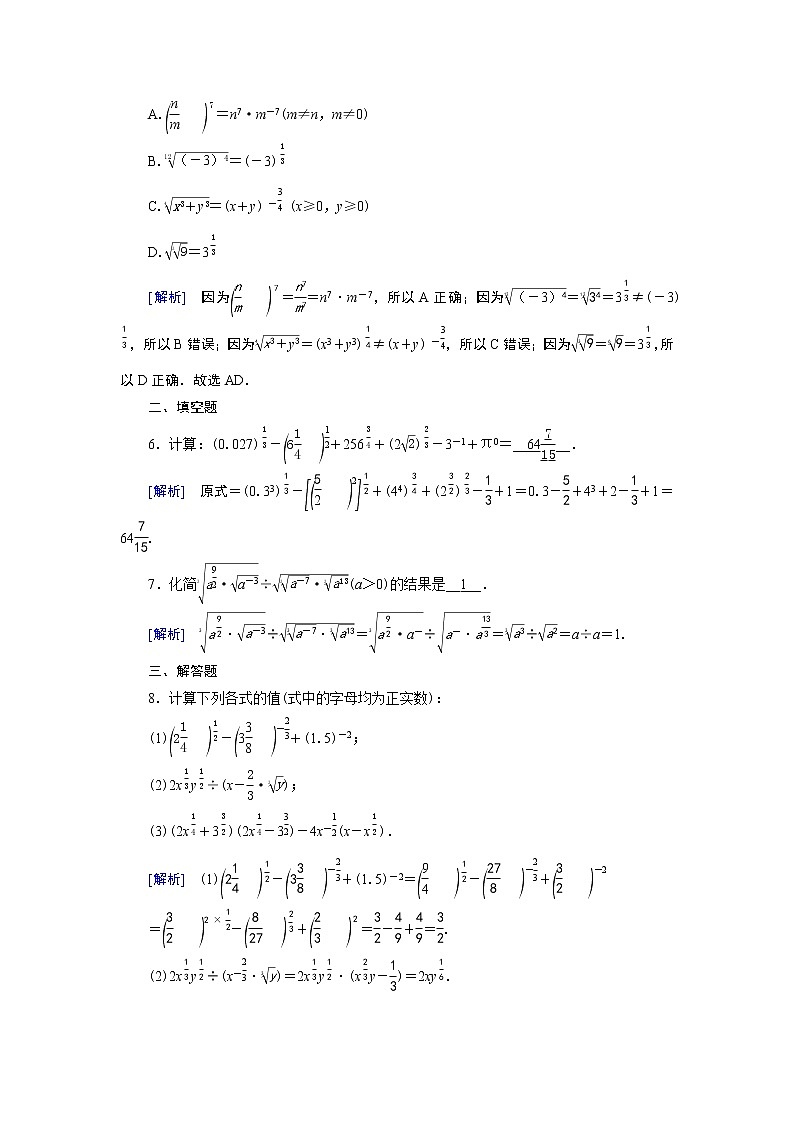 A.(n/m)^7=n^7·m^{-7}(m≠n,m≠0)
B.\sqrt[12]{(-3)^4}=(-3)^{1/3}
C.\sqrt{x^3+y^3}=(x+y)^{-3/4}(x≥0,y≥0)
D.\sqrt{\sqrt{9}}=3^{1/3}
[解析] 因为(n/m)^7=n^7/m^7=n^7·m^{-7},所以A正确;因为\sqrt[12]{(-3)^4}=\sqrt[12]{3^4}=3^{1/3}≠(-3)
^{1/3},所以B错误;因为\sqrt{x^3+y^3}=(x^3+y^3)^{1/4}≠(x+y)^{-3/4},所以C错误;因为\sqrt{\sqrt{9}}=\sqrt{9}=3^{1/3},所
以D正确.故选AD.
二、填空题
6.计算:(0.027)^{1/3}-(6 1/4)^{1/2}+256^{3/4}+(2\sqrt{2})^{2/3}-3^{-1}+π^0=__64 7/15__.
[解析] 原式=(0.3^3)^{1/3}-[(5/2)^2]^{1/2}+(4^4)^{3/4}+(2^{3/2})^{2/3}-1/3+1=0.3-5/2+4^3+2-1/3+1=
64 7/15.
7.化简\sqrt[3]{a^{9/2}·\sqrt{a^{-3}}}÷\sqrt{\sqrt[3]{a^{-7}}·\sqrt[3]{a^{13}}}(a>0)的结果是__1__.
[解析] \sqrt[3]{a^{9/2}·\sqrt{a^{-3}}}÷\sqrt{\sqrt[3]{a^{-7}}·\sqrt[3]{a^{13}}}=\sqrt[3]{a^{9/2}·a^-}÷\sqrt{a^-·a^{13/3}}=\sqrt[3]{a^3}÷\sqrt{a^2}=a÷a=1.
三、解答题
8.计算下列各式的值(式中的字母均为正实数):
(1)(2 1/4)^{1/2}-(3 3/8)^{-2/3}+(1.5)^{-2};
(2)2x^{1/3}y^{1/2}÷(x-2/3·\sqrt[3]{y});
(3)(2x^{1/4}+3^{3/2})(2x^{1/4}-3^{3/2})-4x^{-1/2}(x-x^{1/2}).
[解析] (1)(2 1/4)^{1/2}-(3 3/8)^{-2/3}+(1.5)^{-2}=(9/4)^{1/2}-(27/8)^{-2/3}+(3/2)^{-2}
=(3/2)^{2×1/2}-(8/27)^{2/3}+(2/3)^2=3/2-4/9+4/9=3/2.
(2)2x^{1/3}y^{1/2}÷(x^{-2/3}·\sqrt[3]{y})=2x^{1/3}y^{1/2}·(x^{2/3}y-1/3)=2xy^{1/6}.